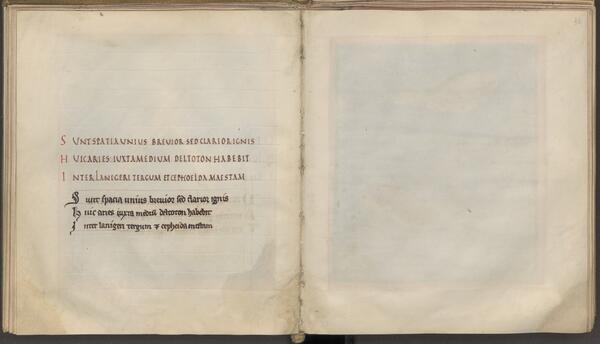 SUNTSPATIA UNIUS BREVIOR SEDCLARIOR IGNIS
HUICARIES IUXTAMEDIUM DELTOTON HABEBIT
INTERLANIGERI TERGUM ETCEPHOEIDA MAESTAM
Sunt spacia unius brevior sed clarior ignis
Huic aries iuxta mediũ deltoton habebit
Inter lanigeri tergum & cepheida mestam